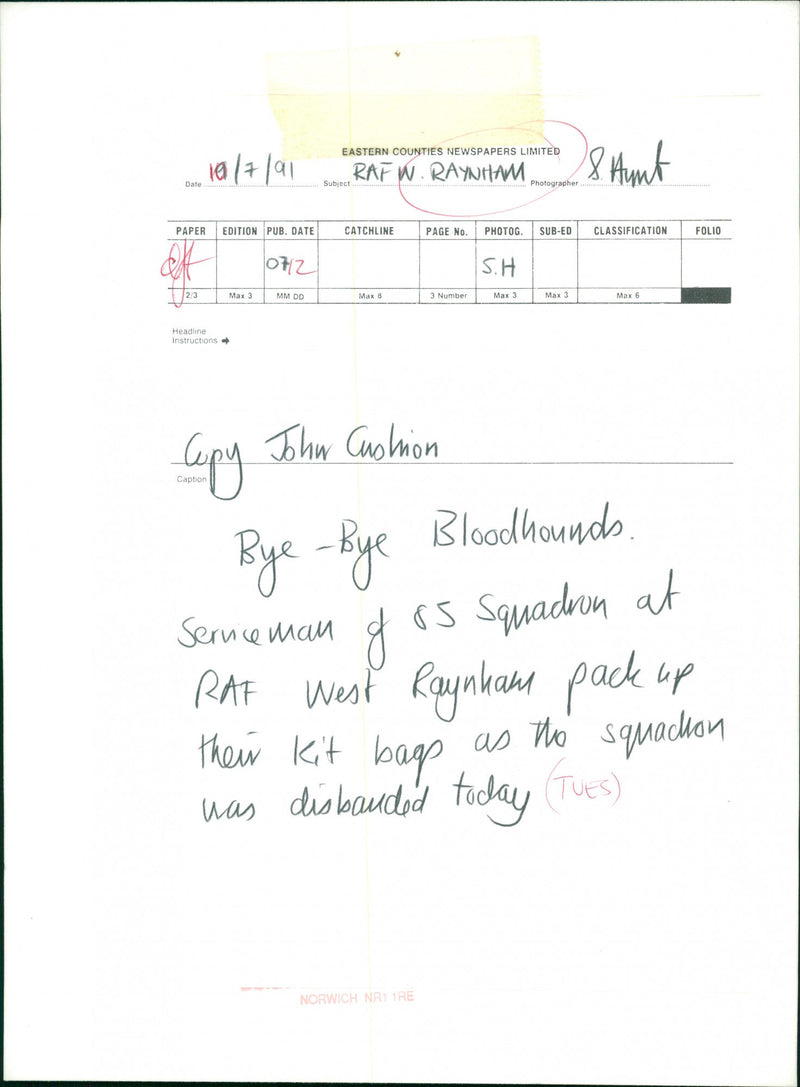 EASTERN COUNTIES NEWSPAPERS LIMITED
Date 10/7/91 Subject RAF W. RAYNHAM Photographer S. Hunt
PAPER EDITION PUB. DATE CATCHLINE PAGE No. PHOTOG. SUB-ED CLASSIFICATION FOLIO
0712 S.H
2/3 Max 3 MM DD Max 8 3 Number Max 3 Max 3 Max 6
Headline
Instructions
Copy John Cushion
Caption
Bye-Bye Bloodhounds.
Serviceman of 85 Squadron at
RAF West Raynham pack up
their kit bags as the squadron
was disbanded today (TUES)
NORWICH NR1 1RE